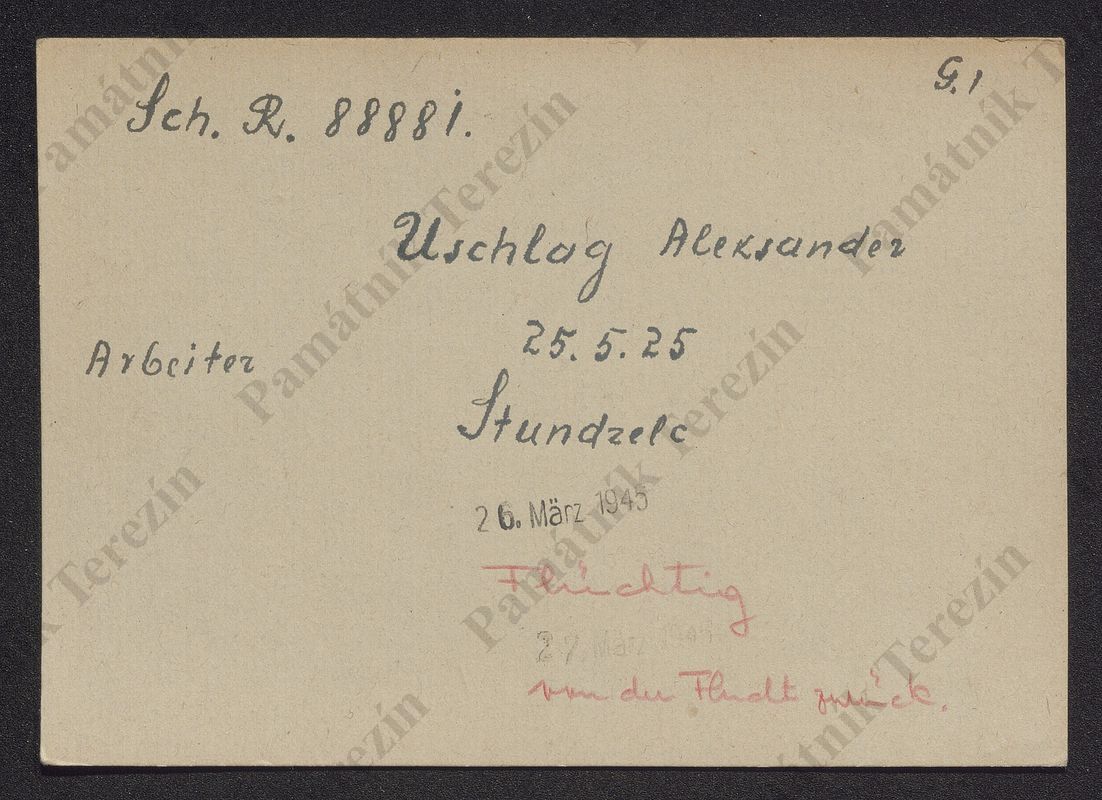 G.1
Sch. R. 88881.
Uschlag Aleksander
25.5.25
Arbeiter
Stundzelc
26. März 1945
Flüchtig
27. März 1945
von der Flucht zurück.
Památník Terezín